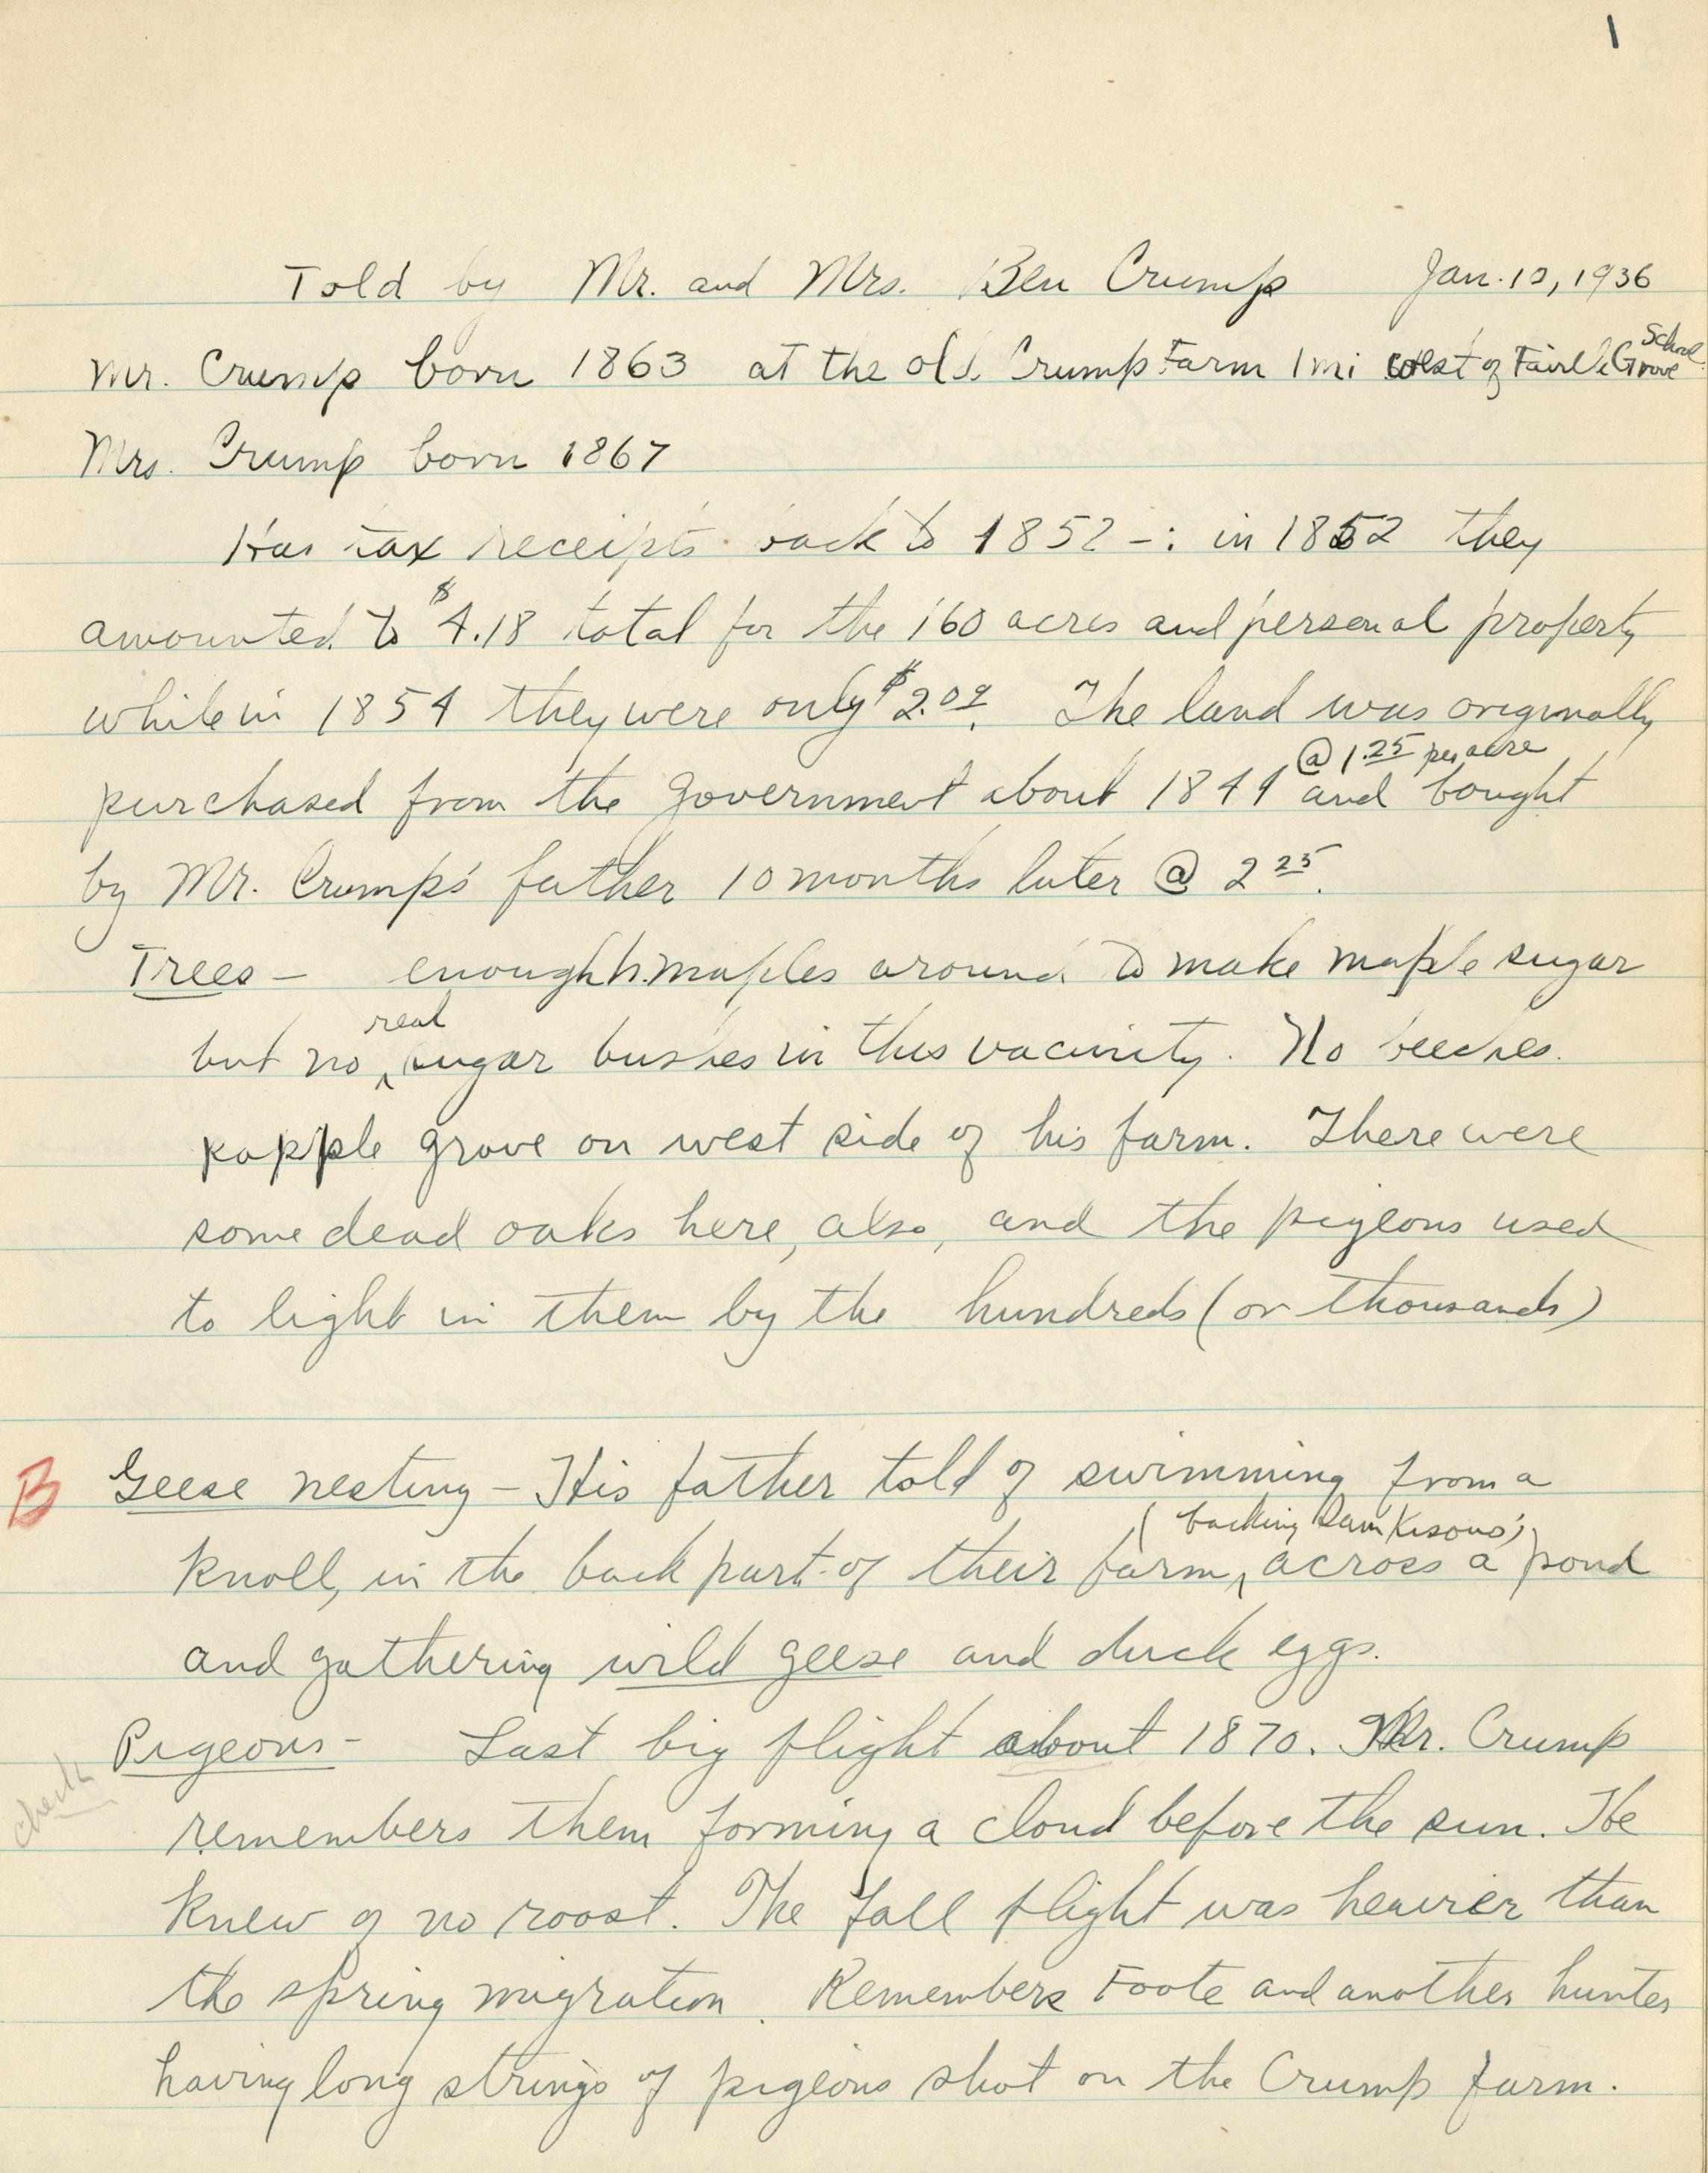 1
Told by Mr. and Mrs. Ben Crump Jan. 10, 1936
School
Mr. Crump born 1863 at the old Crump Farm 1 mi west of Grove
Mrs. Crump born 1867
Has tax receipts back to 1852 -: in 1852 they
amounted to $4.18 total for the 160 acres and personal property
while in 1854 they were only $2.09. The land was originally
@ 1.25 per acre
purchased from the government about 1849 and bought
by Mr. Crump's father 10 months later @ 2 25.
Trees - enough h. maples around to make maple sugar
real
but no sugar bushes in this vacinity. No beeches.
popple grove on west side of his farm. There were
some dead oaks here, also, and the pigeons used
to light in them by the hundreds (or thousands)
B Geese nesting - His father told of swimming from a
(backing Sam
knoll, in the back part of their farm, across a pond
and gathering wild geese and duck eggs.
Pigeons - Last big flight about 1870. Mr. Crump
check
remembers them forming a cloud before the sun. He
knew of no roost. The fall flight was heavier than
the spring migration. Remembers Foote and another hunter
having long strings of pigeons shot on the Crump farm.